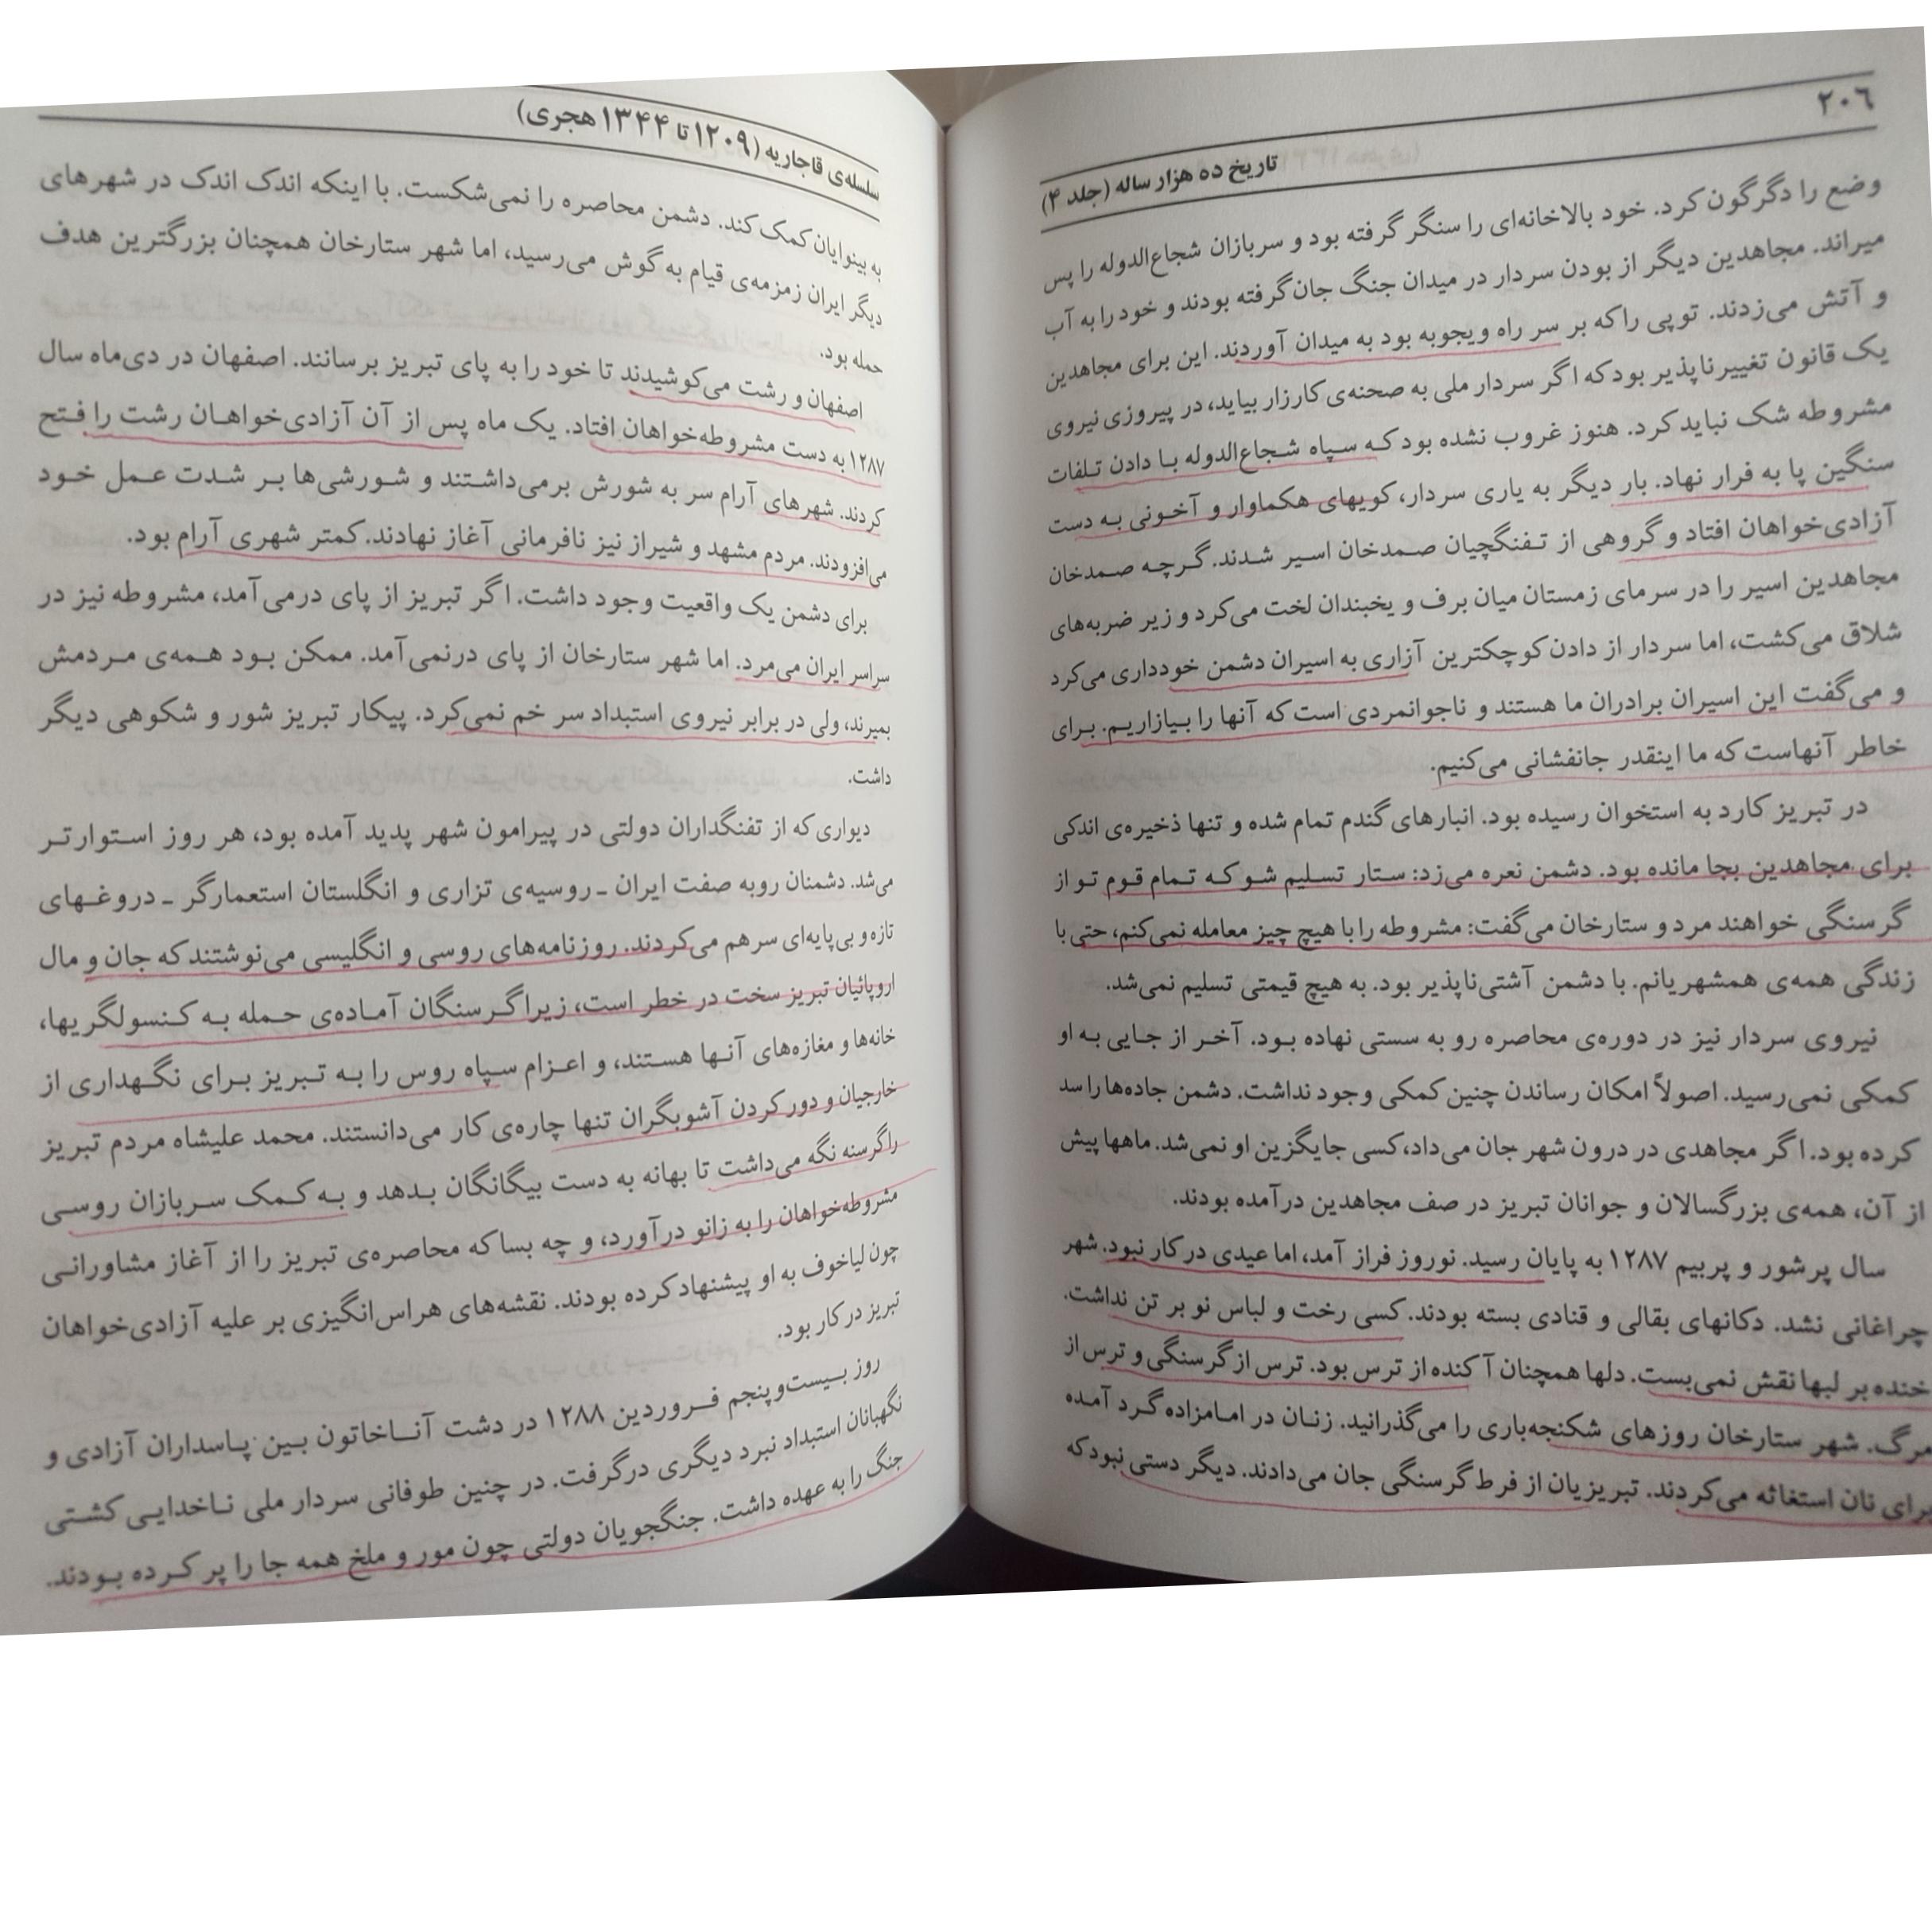 ۲۰۶
تاریخ ده هزار ساله (جلد ۴)
وضع را دگرگون کرد. خود بالاخانه‌ای را سنگر گرفته بود و سربازان شجاع‌الدوله را پس
میراند. مجاهدین دیگر از بودن سردار در میدان جنگ جان گرفته بودند و خود را به آب
و آتش می‌زدند. توپی را که بر سر راه ویجوبه بود به میدان آوردند. این برای مجاهدین
یک قانون تغییرناپذیر بود که اگر سردار ملی به صحنه‌ی کارزار بیاید، در پیروزی نیروی
مشروطه شک نباید کرد. هنوز غروب نشده بود که سپاه شجاع‌الدوله با دادن تلفات
سنگین پا به فرار نهاد. بار دیگر به یاری سردار، کویهای هکماوار و آخونی به دست
آزادی‌خواهان افتاد و گروهی از تفنگچیان صمدخان اسیر شدند. گرچه صمدخان
مجاهدین اسیر را در سرمای زمستان میان برف و یخبندان لخت می‌کرد و زیر ضربه‌های
شلاق می‌کشت، اما سردار از دادن کوچکترین آزاری به اسیران دشمن خودداری می‌کرد
و می‌گفت این اسیران برادران ما هستند و ناجوانمردی است که آنها را بیازاریم. برای
خاطر آنهاست که ما اینقدر جانفشانی می‌کنیم.
در تبریز کارد به استخوان رسیده بود. انبارهای گندم تمام شده و تنها ذخیره‌ی اندکی
برای مجاهدین بجا مانده بود. دشمن نعره می‌زد: ستار تسلیم شو که تمام قوم تو از
گرسنگی خواهند مرد و ستارخان می‌گفت: مشروطه را با هیچ چیز معامله نمی‌کنم، حتی با
زندگی همه‌ی همشهریانم. با دشمن آشتی‌ناپذیر بود. به هیچ قیمتی تسلیم نمی‌شد.
نیروی سردار نیز در دوره‌ی محاصره رو به سستی نهاده بود. آخر از جایی به او
کمکی نمی‌رسید. اصولاً امکان رساندن چنین کمکی وجود نداشت. دشمن جاده‌ها را سد
کرده بود. اگر مجاهدی در درون شهر جان می‌داد، کسی جایگزین او نمی‌شد. ماهها پیش
از آن، همه‌ی بزرگسالان و جوانان تبریز در صف مجاهدین درآمده بودند.
سال پرشور و پربیم ۱۲۸۷ به پایان رسید. نوروز فراز آمد، اما عیدی در کار نبود. شهر
چراغانی نشد. دکانهای بقالی و قنادی بسته بودند. کسی رخت و لباس نو بر تن نداشت.
خنده بر لبها نقش نمی‌بست. دلها همچنان آکنده از ترس بود. ترس از گرسنگی و ترس از
مرگ. شهر ستارخان روزهای شکنجه‌باری را می‌گذرانید. زنان در امامزاده گرد آمده
برای نان استغاثه می‌کردند. تبریزیان از فرط گرسنگی جان می‌دادند. دیگر دستی نبود که
سلسله‌ی قاجاریه (۱۲۰۹ تا ۱۳۴۴ هجری)
به بینوایان کمک کند. دشمن محاصره را نمی‌شکست. با اینکه اندک اندک در شهرهای
دیگر ایران زمزمه‌ی قیام به گوش می‌رسید، اما شهر ستارخان همچنان بزرگترین هدف
حمله بود.
اصفهان و رشت می‌کوشیدند تا خود را به پای تبریز برسانند. اصفهان در دی‌ماه سال
۱۲۸۷ به دست مشروطه‌خواهان افتاد. یک ماه پس از آن آزادی‌خواهان رشت را فتح
کردند. شهرهای آرام سر به شورش برمی‌داشتند و شورشی‌ها بر شدت عمل خود
می‌افزودند. مردم مشهد و شیراز نیز نافرمانی آغاز نهادند. کمتر شهری آرام بود.
برای دشمن یک واقعیت وجود داشت. اگر تبریز از پای درمی‌آمد، مشروطه نیز در
سراسر ایران می‌مرد. اما شهر ستارخان از پای درنمی‌آمد. ممکن بود همه‌ی مردمش
بمیرند، ولی در برابر نیروی استبداد سر خم نمی‌کرد. پیکار تبریز شور و شکوهی دیگر
داشت.
دیواری که از تفنگداران دولتی در پیرامون شهر پدید آمده بود، هر روز استوارتر
می‌شد. دشمنان روبه صفت ایران ـ روسیه‌ی تزاری و انگلستان استعمارگر ـ دروغهای
تازه و بی‌پایه‌ای سرهم می‌کردند. روزنامه‌های روسی و انگلیسی می‌نوشتند که جان و مال
اروپائیان تبریز سخت در خطر است، زیرا گرسنگان آماده‌ی حمله به کنسولگریها،
خانه‌ها و مغازه‌های آنها هستند، و اعزام سپاه روس را به تبریز برای نگهداری از
خارجیان و دور کردن آشوبگران تنها چاره‌ی کار می‌دانستند. محمد علیشاه مردم تبریز
را گرسنه نگه می‌داشت تا بهانه به دست بیگانگان بدهد و به کمک سربازان روسی
مشروطه‌خواهان را به زانو درآورد، و چه بسا که محاصره‌ی تبریز را از آغاز مشاورانی
چون لیاخوف به او پیشنهاد کرده بودند. نقشه‌های هراس‌انگیزی بر علیه آزادی‌خواهان
تبریز در کار بود.
روز بیست‌وپنجم فروردین ۱۲۸۸ در دشت آناخاتون بین پاسداران آزادی و
نگهبانان استبداد نبرد دیگری درگرفت. در چنین طوفانی سردار ملی ناخدایی کشتی
جنگ را به عهده داشت. جنگجویان دولتی چون مور و ملخ همه جا را پر کرده بودند.